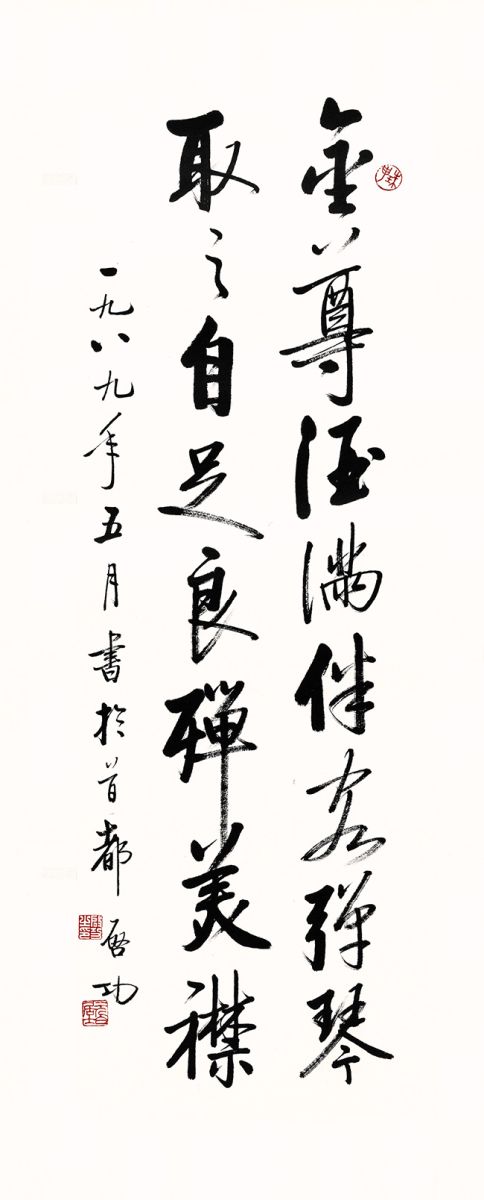 金尊酒滿伴客弹琴
取之自足良殫美襟
一九八九年五月書於首都 启功